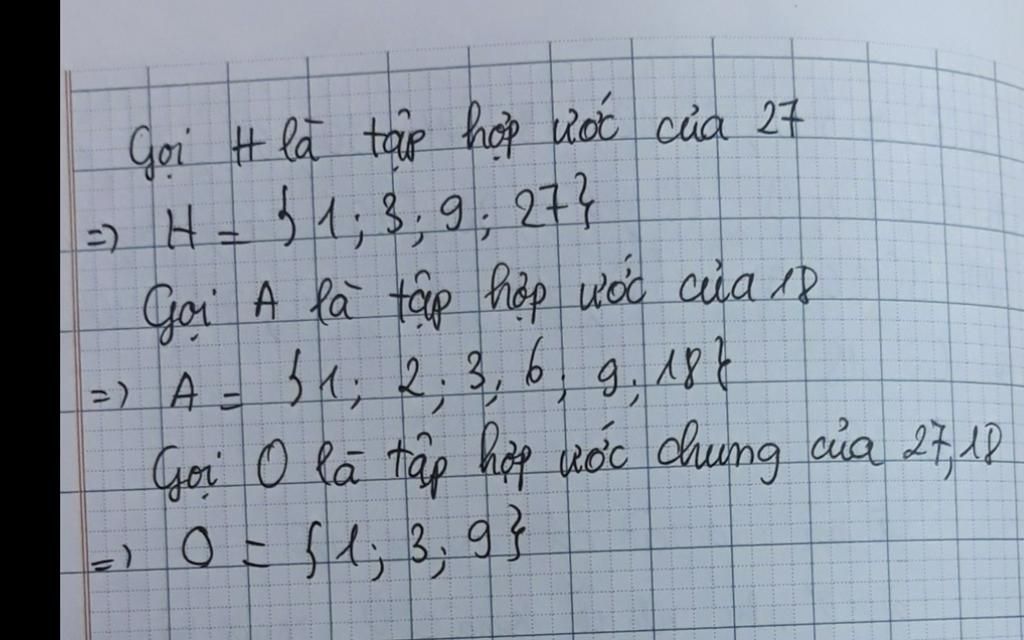 Gọi H là tập hợp ước của 27
=) H = {1; 3; 9; 27}
Gọi A là tập hợp ước của 18
=) A = {1; 2; 3, 6; 9; 18}
Gọi O là tập hợp ước chung của 27, 18
=) O = {1; 3; 9}